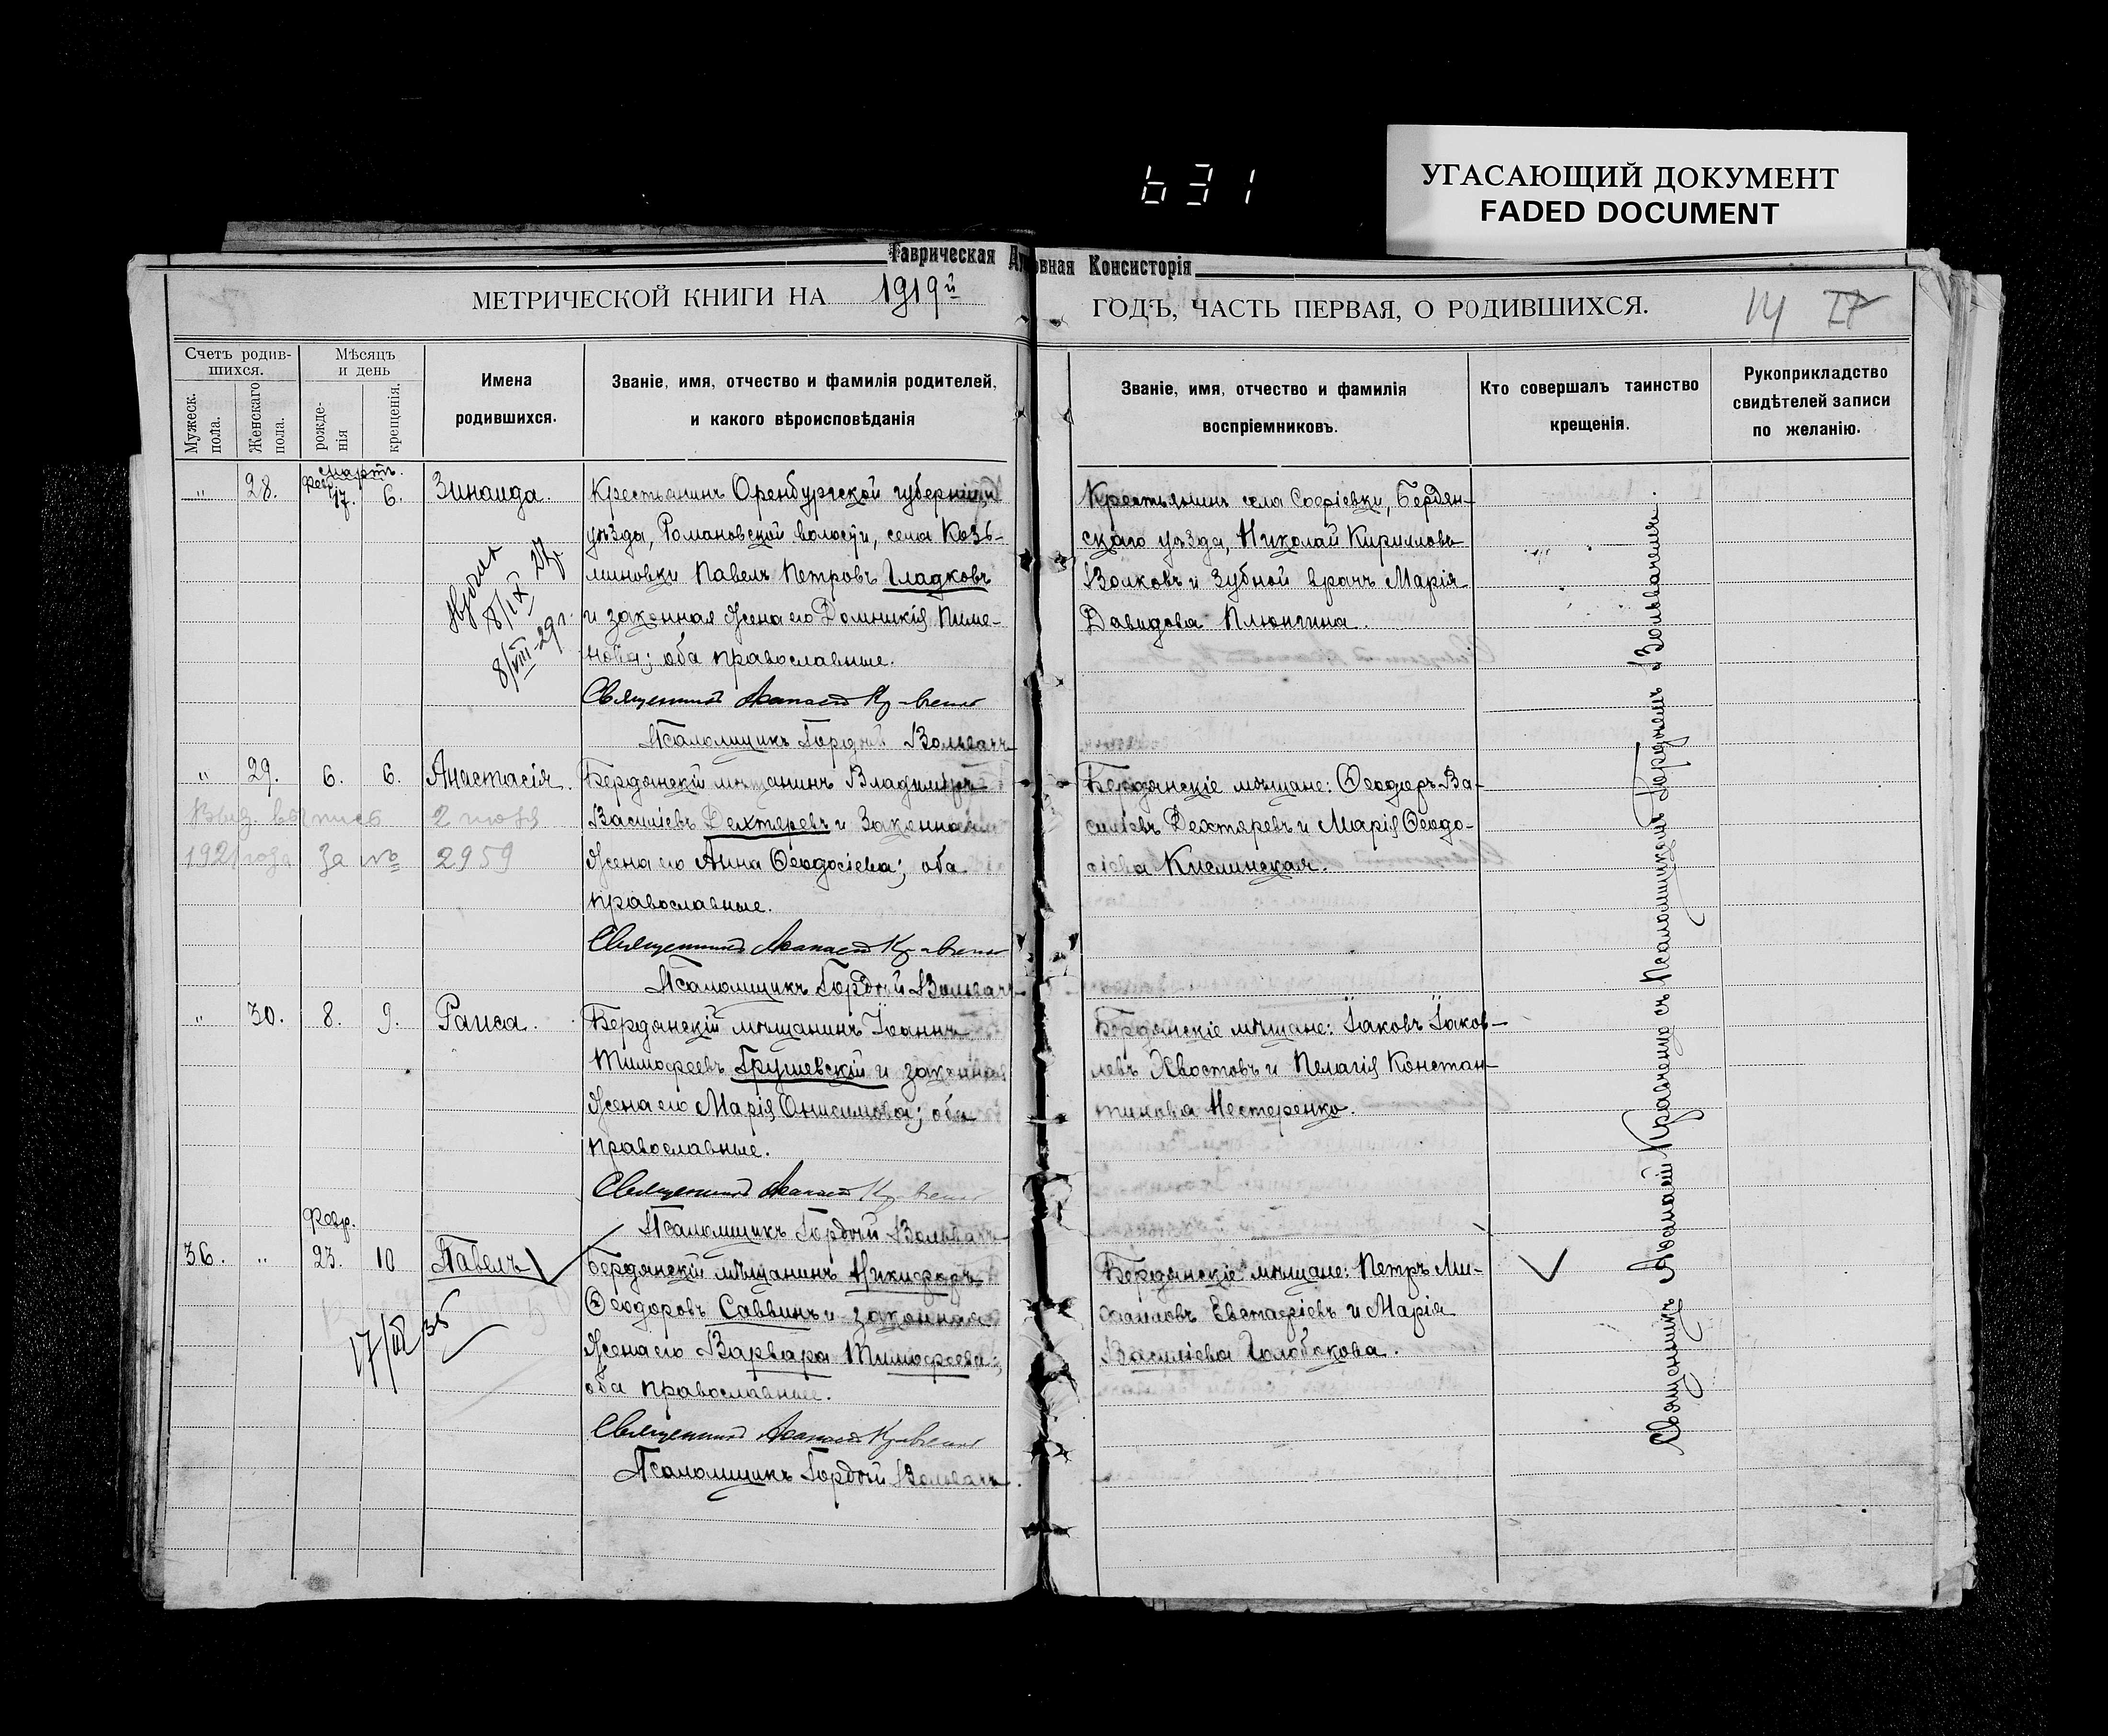 631
УГАСАЮЩИЙ ДОКУМЕНТ
FADED DOCUMENT
Таврическая Духовная Консисторія
МЕТРИЧЕСКОЙ КНИГИ НА 1919й ГОДЪ, ЧАСТЬ ПЕРВАЯ, О РОДИВШИХСЯ.
14
Счетъ родив-
шихся.
Мужеск.
пола.
Женскаго
пола.
Мѣсяцъ
и день
рожде-
нія
крещенія.
Имена
родившихся.
Званіе, имя, отчество и фамилія родителей,
и какого вѣроисповѣданія
Званіе, имя, отчество и фамилія
воспріемниковъ.
Кто совершалъ таинство
крещенія.
Рукоприкладство
свидѣтелей записи
по желанію.
Мартъ.
Фев.
„ 28. 17. 6. Зинаида.
Крестьянинъ Оренбургской губерніи и
уѣзда, Романовской волости, села Козь-
миновки Павелъ Петровъ Гладковъ
и законная жена его Домникія Пиме-
нова; оба православные.
Священникъ Аѳанасій Кравченко
Псаломщикъ Гордѣй Вольвачъ
8/IX 27
8/VIII-29г.
Крестьянинъ села Софіевки, Бердян-
скаго уѣзда, Николай Кирилловъ
Волковъ и зубной врачъ Марія
Давидова Плюнгина.
„ 29. 6. 6. Анастасія.
Выд. выпись 2 июля
1921 года за № 2959
Бердянскій мѣщанинъ Владиміръ
Василіевъ Дехтяревъ и законная
жена его Анна Ѳеодосіева; оба
православные.
Священникъ Аѳанасій Кравченко
Псаломщикъ Гордѣй Вольвачъ
Бердянскіе мѣщане: Ѳеодоръ Ва-
силіевъ Дехтяревъ и Марія Ѳеодо-
сіева Кислинская.
„ 30. 8. 9. Раиса.
Бердянскій мѣщанинъ Іоаннъ
Тимофеевъ Грушевскій и законная
жена его Марія Онисимова; оба
православные.
Священникъ Аѳанасій Кравченко
Псаломщикъ Гордѣй Вольвачъ
Бердянскіе мѣщане: Іаковъ Іаков-
левъ Хвостовъ и Пелагія Констан-
тинова Нестеренко.
Февр.
36. „ 23. 10 Павелъ
17/III 35
Бердянскій мѣщанинъ Никифоръ
Ѳеодоровъ Саввинъ и законная
жена его Варвара Тимофеева;
оба православные.
Священникъ Аѳанасій Кравченко
Псаломщикъ Гордѣй Вольвачъ.
Бердянскіе мѣщане: Петръ Ми-
хаиловъ Евстафіевъ и Марія
Василіева Голобокова.
Священникъ Аѳанасій Кравченко съ Псаломщикомъ Гордѣемъ Вольвачемъ.